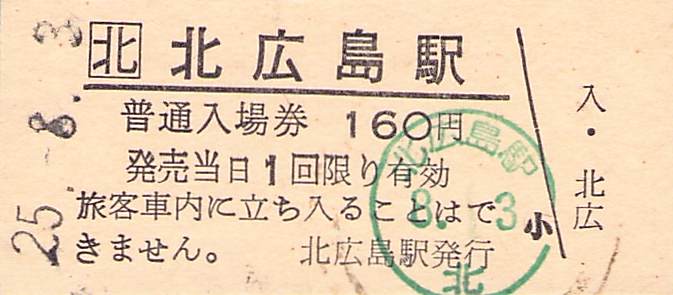 25.-8.-3
北 北広島駅
普通入場券 160円
発売当日1回限り有効
旅客車内に立ち入ることはで
きません。 北広島駅発行
小
入・北広
北広島駅
8. 3
北